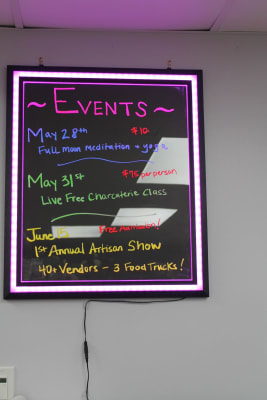 ~ EVENTS ~
May 28th $10
Full moon meditation + yoga
May 31st $75 per person
Live Free Charcuterie Class
June Free Admission!
1st Annual Artisan Show
40+ Vendors - 3 Food Trucks!